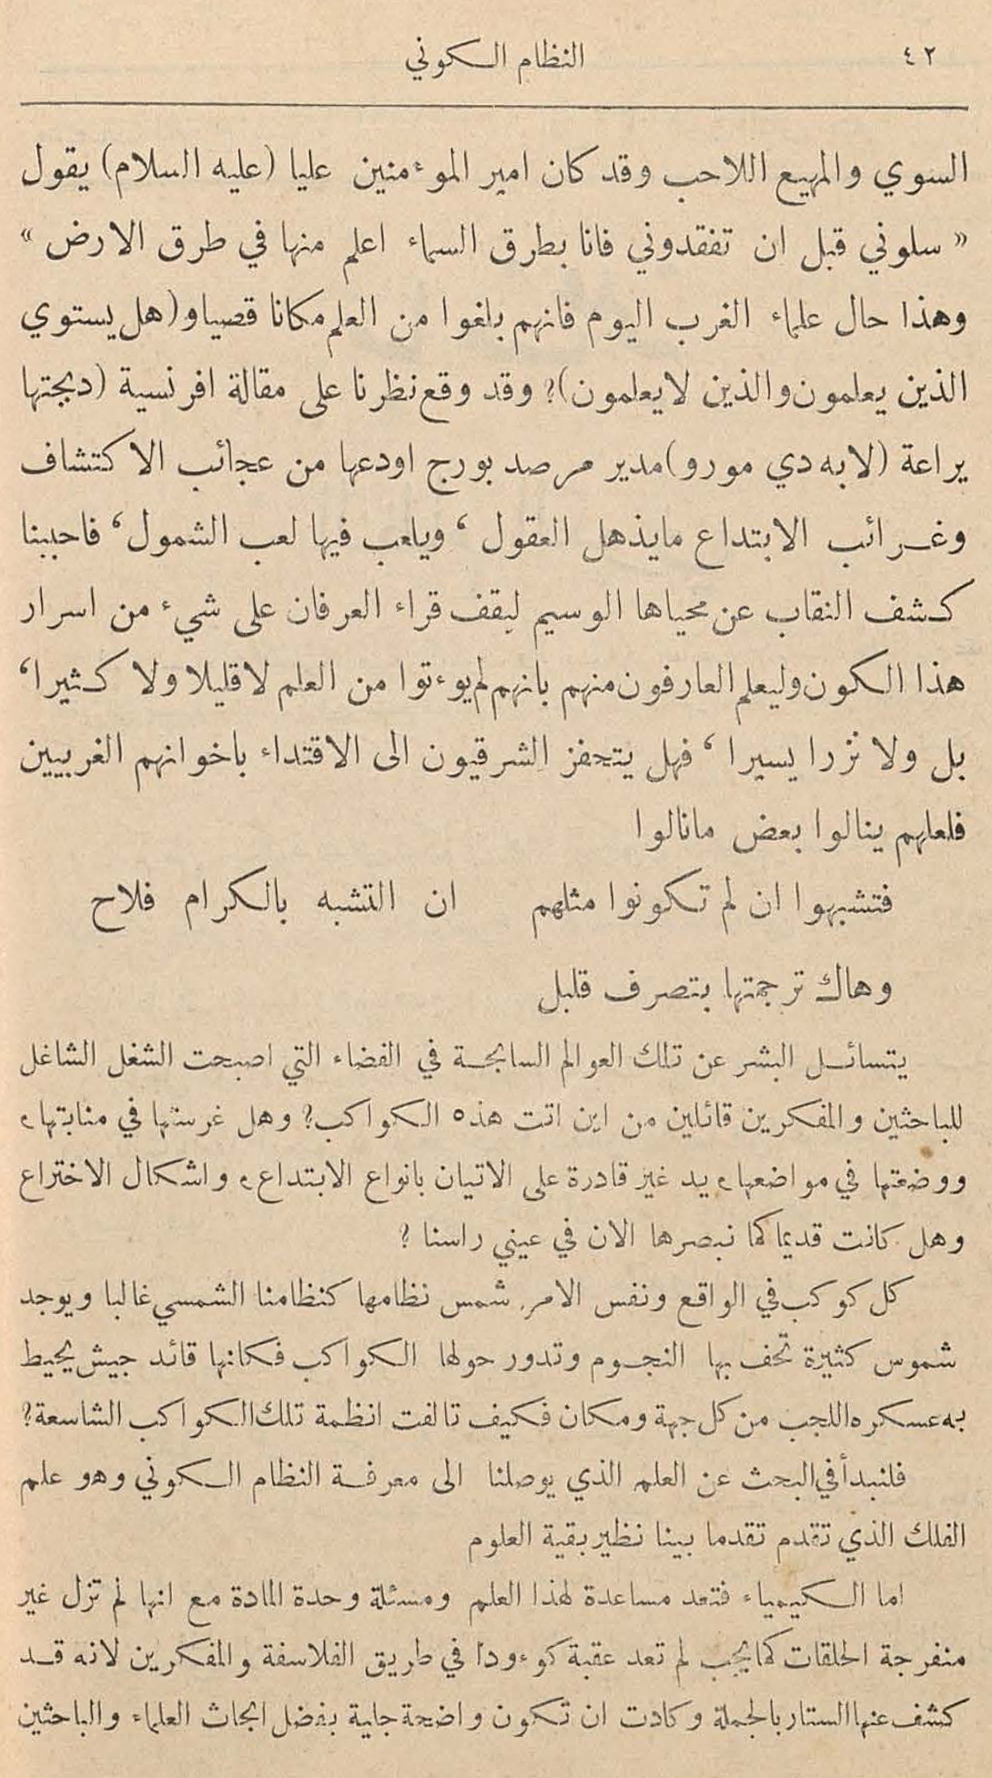 ٤٢
النظام الكوني
السوي والمهيع اللاحب وقد كان امير الموءمنين عليا (عليه السلام) يقول
« سلوني قبل ان تفقدوني فانا بطرق السماء اعلم منها في طرق الارض »
وهذا حال علماء الغرب اليوم فانهم بلغوا من العلم مكانا قصيا و(هل يستوي
الذين يعلمون والذين لا يعلمون)؟ وقد وقع نظرنا على مقالة افرنسية (دبجتها
يراعة (لابه دي مورو) مدير مرصد بورج اودعها من عجائب الاكتشاف
وغرائب الابتداع مايذهل العقول ، ويلعب فيها لعب الشمول ، فاحببنا
كشف النقاب عن محياها الوسيم ليقف قراء العرفان على شيء من اسرار
هذا الكون وليعلم العارفون منهم بانهم لم يوءتوا من العلم لا قليلا ولا كثيرا ،
بل ولا نزرا يسيرا ، فهل يتحفز الشرقيون الى الاقتداء باخوانهم الغربيين
فلعلهم ينالوا بعض مانالوا
فتشبهوا ان لم تكونوا مثلهم ان التشبه بالكرام فلاح
وهاك ترجمتها بتصرف قليل
يتسائل البشر عن تلك العوالم السابحة في الفضاء التي اصبحت الشغل الشاغل
للباحثين والمفكرين قائلين من اين اتت هذه الكواكب؟ وهل غرستها في منابتها ،
ووضعتها في مواضعها ، يد غير قادرة على الاتيان بانواع الابتداع ، واشكال الاختراع
وهل كانت قديما كما نبصرها الان في عيني راسنا ؟
كل كوكب في الواقع ونفس الامر شمس نظامها كنظامنا الشمسي غالبا ويوجد
شموس كثيرة تحف بها النجوم وتدور حولها الكواكب فكانها قائد جيش يحيط
به عسكره اللجب من كل جهة ومكان فكيف تالفت انظمة تلك الكواكب الشاسعة؟
فلنبدأ في البحث عن العلم الذي يوصلنا الى معرفة النظام الكوني وهو علم
الفلك الذي تقدم تقدما بينا نظير بقية العلوم
اما الكيمياء فتعد مساعدة لهذا العلم ومسئلة وحدة المادة مع انها لم تزل غير
منفرجة الحلقات كما يجب لم تعد عقبة كوءودا في طريق الفلاسفة والمفكرين لانه قد
كشف عنها الستار بالجملة وكادت ان تكون واضحة جلية بفضل ابحاث العلماء والباحثين